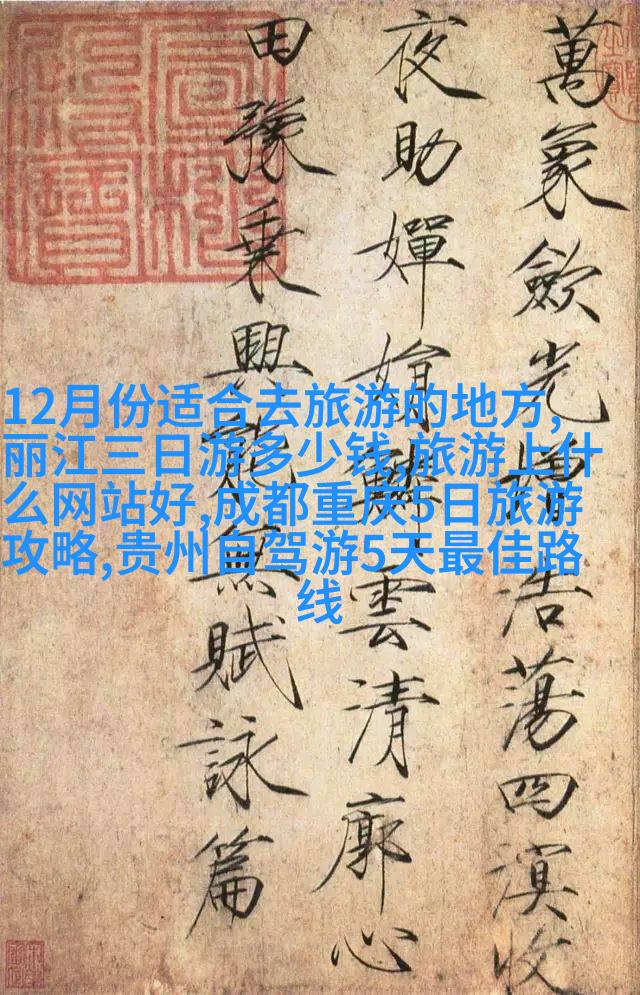 12月份适合去旅游的地方,
丽江三日游多少钱,旅游上什
么网站好,成都重庆5日旅游
攻略,贵州自驾游5天最佳路
线
萬象歛光增浩蕩四溟收
夜助嬋娟鱗雲清廓心
田豫乗興能無賦詠篇